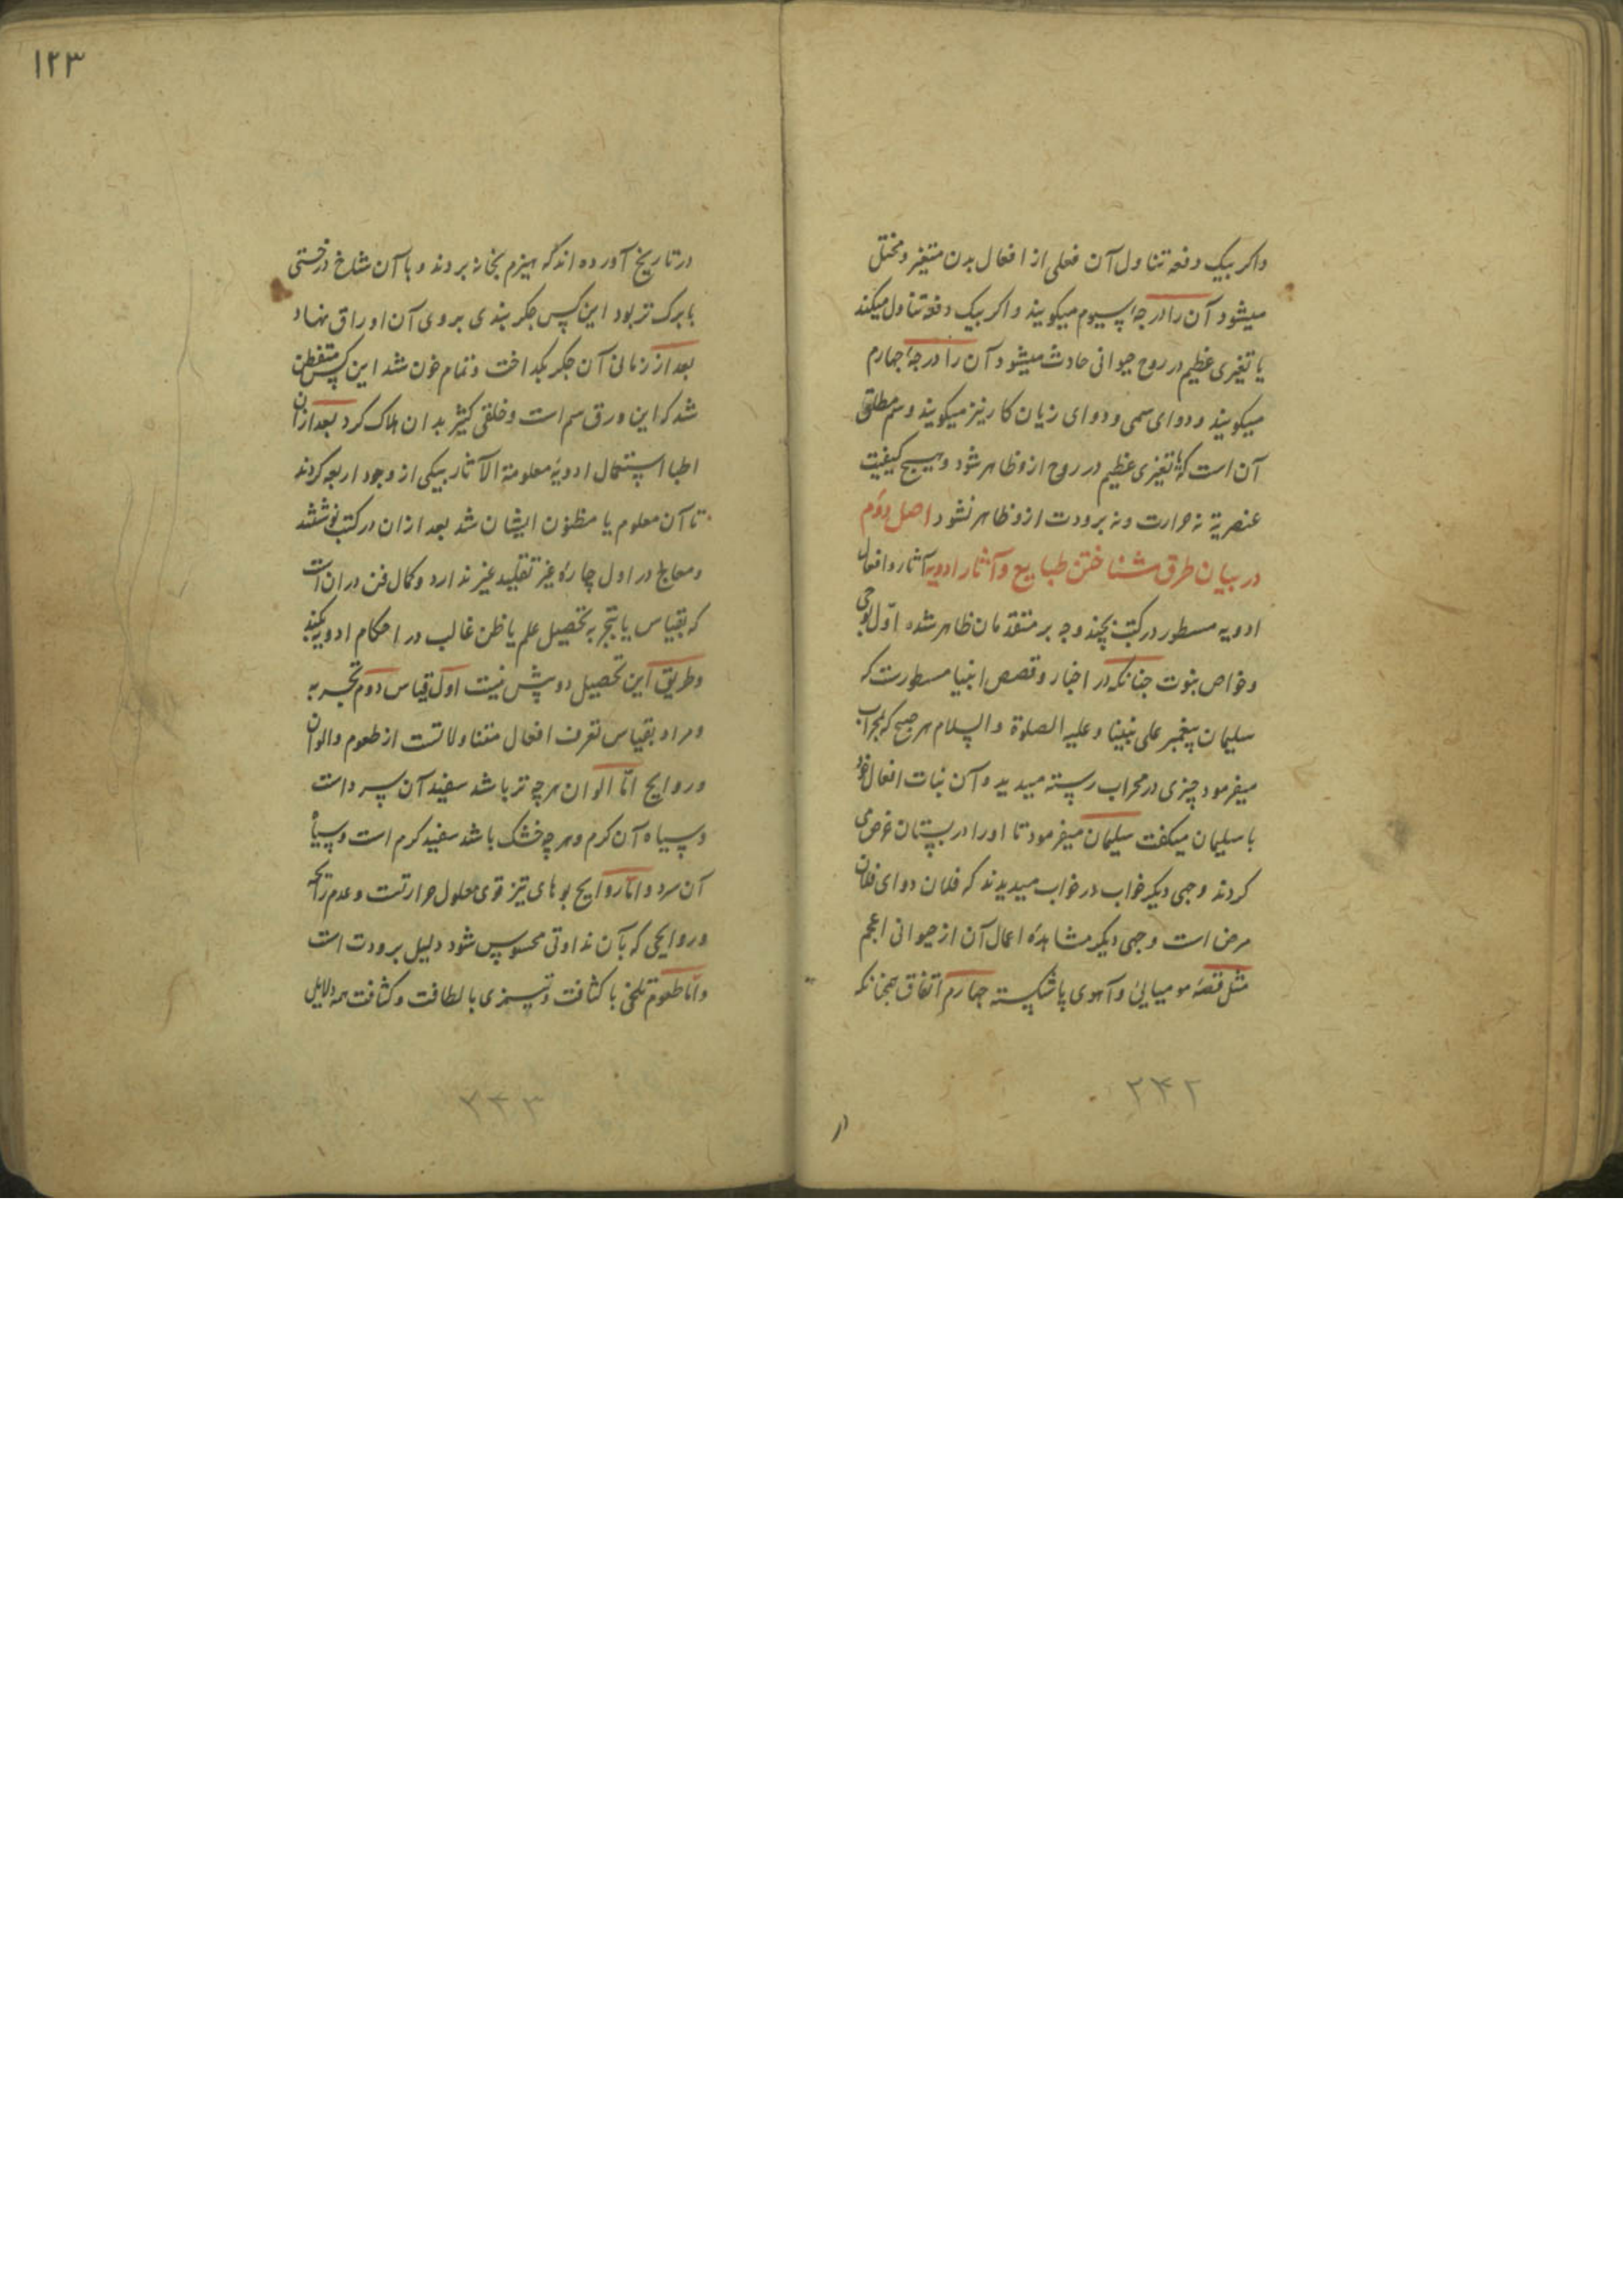 واکر بیک دفعه تناول آن فعلی از افعال بدن متغیر و مختل
میشود آن را درجهٔ سیوم میکویند واکر بیک دفعه تناول میکند
یا تغیری عظیم در روح حیوانی حادث میشود آن را درجهٔ جهارم
میکویند و دوای سمی و دوای زیان کار نیز میکویند و سم مطلق
آن است که تغیری عظیم در روح ازو ظاهر شود و هیچ کیفیت
عنصریة نه حرارت ونه برودت ازو ظاهر نشود اصل دوم
در بیان طرق شناختن طبایع و آثار ادویه آثار و افعال
ادویه مسطور در کتب بچند وجه بر متقدمان ظاهر شده اول بوحی
وخواص نبوت جنانکه در اخبار و قصص انبیا مسطورست که
سلیمان پیغمبر علی نبینا و علیه الصلوة والسلام هر صبح که بمحراب
میفرمود چیزی در محراب رسته میدید و آن نبات افعال خود
با سلیمان میکفت سلیمان میفرمود تا اورا در بستان غرس
کردند وجهی دیکر خواب در خواب میدیدند که فلان دوای فلان
مرض است وجهی دیکر مشاهدهٔ اعمال آن از حیوانی اعجم
مثل قصهٔ مومیایی و آهوی پا شکسته جهارم اتفاق همجنانکه
۲۴۲
در
۱۲۳
در تاریخ آورده اند که هیزم بخانه بردند و با آن شاخ درختی
با برک تر بود این کس جکر بندی بر روی آن اوراق نهاد
بعد از زمانی آن جکر بکداخت و تمام خون شد این کس متفطن
شد که این ورق سم است وخلقی کثیر بدان هلاک کرد بعد ازان
اطبا استعمال ادویهٔ معلومة الآثار بیکی از وجوه اربعه کردند
تا آن معلوم یا مظنون ایشان شد بعد ازان در کتب نوشتند
ومعالج در اول چارهٔ غیر تقلید غیر ندارد وکمال فن دران است
که بقیاس یا بتجربه تحصیل علم یا ظن غالب در احکام ادویه بکند
وطریق این تحصیل دو بیش نیست اول قیاس دوم تجربه
ومراد بقیاس تعرف افعال متناولاتست از طعوم والوان
وروایح اما الوان هر چه تر باشد سفید آن سرد است
وسیاه آن کرم وهر چه خشک باشد سفید کرم است وسیاه
آن سرد واما روایح بوهای تیز قوی معلول حرارتست وعدم رایحه
وروایحی که بآن نداوتی محسوس شود دلیل برودت است
واما طعوم تلخی با کثافت وتیزی با لطافت وکثافت همه دلایل
۲۴۳